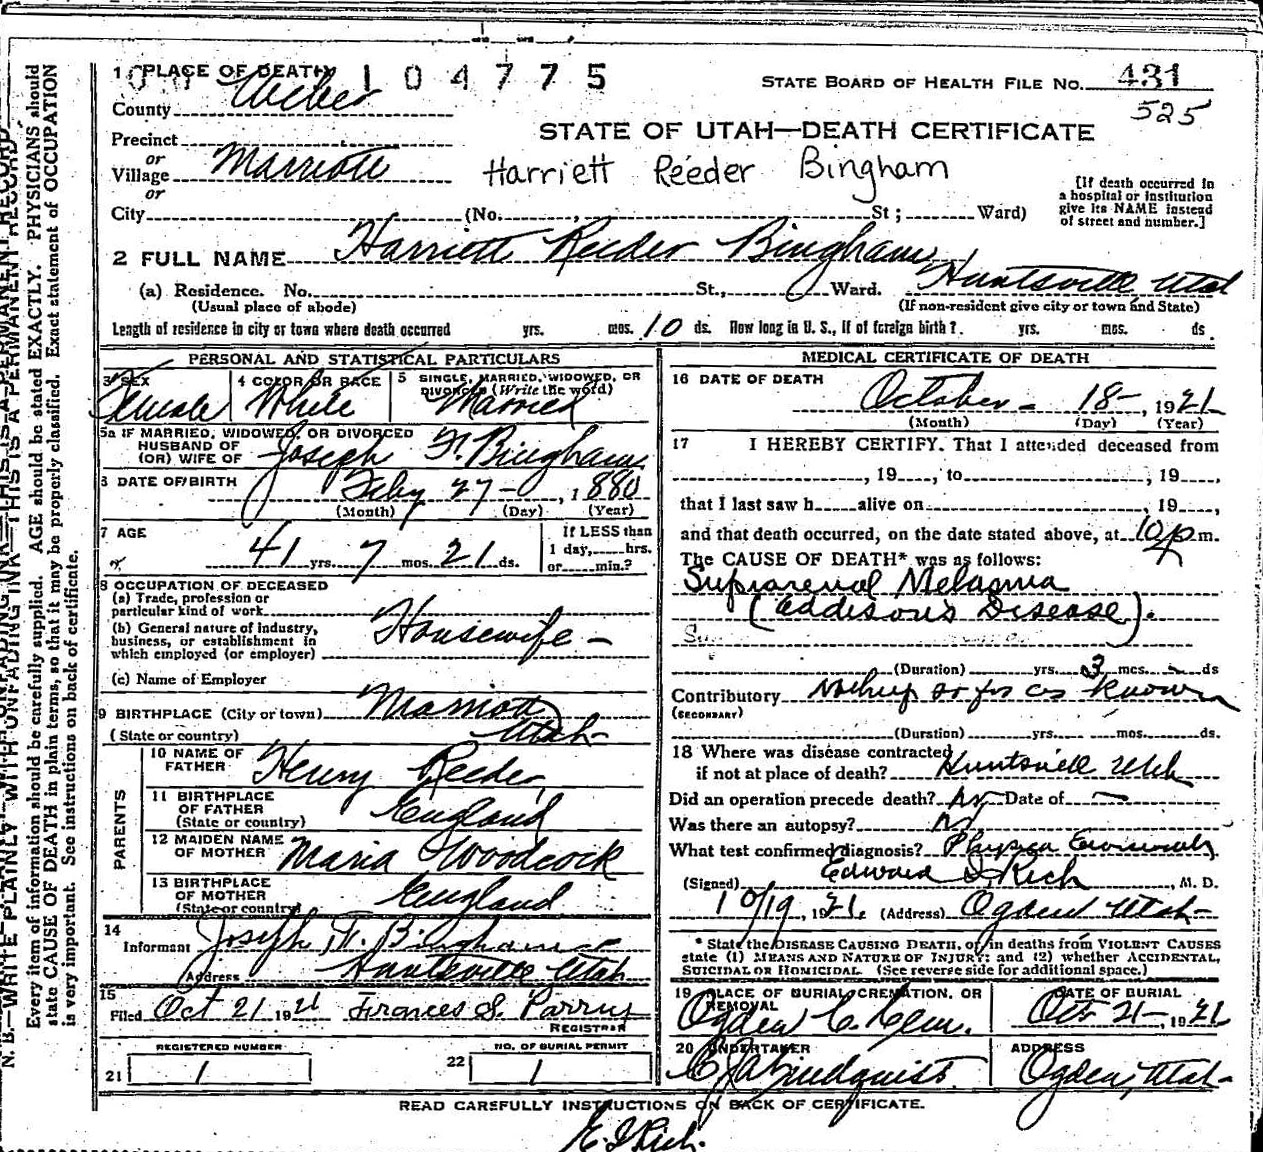 1 PLACE OF DEATH 104775 STATE BOARD OF HEALTH FILE No. 431
County Weber 525
STATE OF UTAH—DEATH CERTIFICATE
Precinct
or
Village Marriott Harriett Reeder Bingham
or
City (No. , St ; Ward)
[If death occurred in
a hospital or institution
give its NAME instead
of street and number.]
2 FULL NAME Harriett Reeder Bingham
(a) Residence. No. St., Ward. Huntsville Utah
(Usual place of abode) (If non-resident give city or town and State)
Length of residence in city or town where death occurred yrs. mos. 10 ds. How long in U. S., if of foreign birth? yrs. mos. ds
PERSONAL AND STATISTICAL PARTICULARS
3 SEX 4 COLOR OR RACE 5 SINGLE, MARRIED, WIDOWED, OR
DIVORCED (Write the word)
Female White Married
5a IF MARRIED, WIDOWED, OR DIVORCED
HUSBAND OF
(OR) WIFE OF Joseph F. Bingham
6 DATE OF BIRTH Feby 27 - , 1880
(Month) (Day) (Year)
7 AGE If LESS than
41 yrs. 7 mos. 21 ds. 1 day, hrs.
or min.?
8 OCCUPATION OF DECEASED
(a) Trade, profession or
particular kind of work
(b) General nature of industry,
business, or establishment in
which employed (or employer) Housewife -
(c) Name of Employer
9 BIRTHPLACE (City or town) Marriott
(State or country) Utah
PARENTS
10 NAME OF
FATHER Henry Reeder
11 BIRTHPLACE
OF FATHER
(State or country) England
12 MAIDEN NAME
OF MOTHER Maria Woodcock
13 BIRTHPLACE
OF MOTHER
(State or country) England
14
Informant Joseph F. Bingham
Address Huntsville Utah
15
Filed Oct 21 1921 Frances S. Parry
REGISTRAR
REGISTERED NUMBER NO. OF BURIAL PERMIT
21 1 22 1
MEDICAL CERTIFICATE OF DEATH
16 DATE OF DEATH
October - 18 - , 1921
(Month) (Day) (Year)
17 I HEREBY CERTIFY. That I attended deceased from
, 19 , to , 19 ,
that I last saw h alive on , 19 ,
and that death occurred, on the date stated above, at 10 p m.
The CAUSE OF DEATH* was as follows:
Suprarenal Melasma
(Addison's Disease).
(Duration) yrs. 3 mos. - ds
Contributory Nothing so far as known
(SECONDARY)
(Duration) yrs. mos. ds.
18 Where was disease contracted
if not at place of death? Huntsvill Utah
Did an operation precede death? No Date of -
Was there an autopsy? No
What test confirmed diagnosis?
(Signed) Edward I. Rich , M. D.
10/19, 1921. (Address) Ogden Utah
* State the DISEASE CAUSING DEATH, or, in deaths from VIOLENT CAUSES
state (1) MEANS AND NATURE OF INJURY; and (2) whether ACCIDENTAL,
SUICIDAL OR HOMICIDAL. (See reverse side for additional space.)
19 PLACE OF BURIAL, CREMATION, OR
REMOVAL DATE OF BURIAL
Ogden C. Cem. Oct 21 - , 1921
20 UNDERTAKER ADDRESS
Lindquist Ogden, Utah
READ CAREFULLY INSTRUCTIONS ON BACK OF CERTIFICATE.
E. I. Rich.
N. B.—WRITE PLAINLY WITH UNFADING INK—THIS IS A PERMANENT RECORD
Every item of information should be carefully supplied. AGE should be stated EXACTLY. PHYSICIANS should
state CAUSE OF DEATH in plain terms, so that it may be properly classified. Exact statement of OCCUPATION
is very important. See instructions on back of certificate.